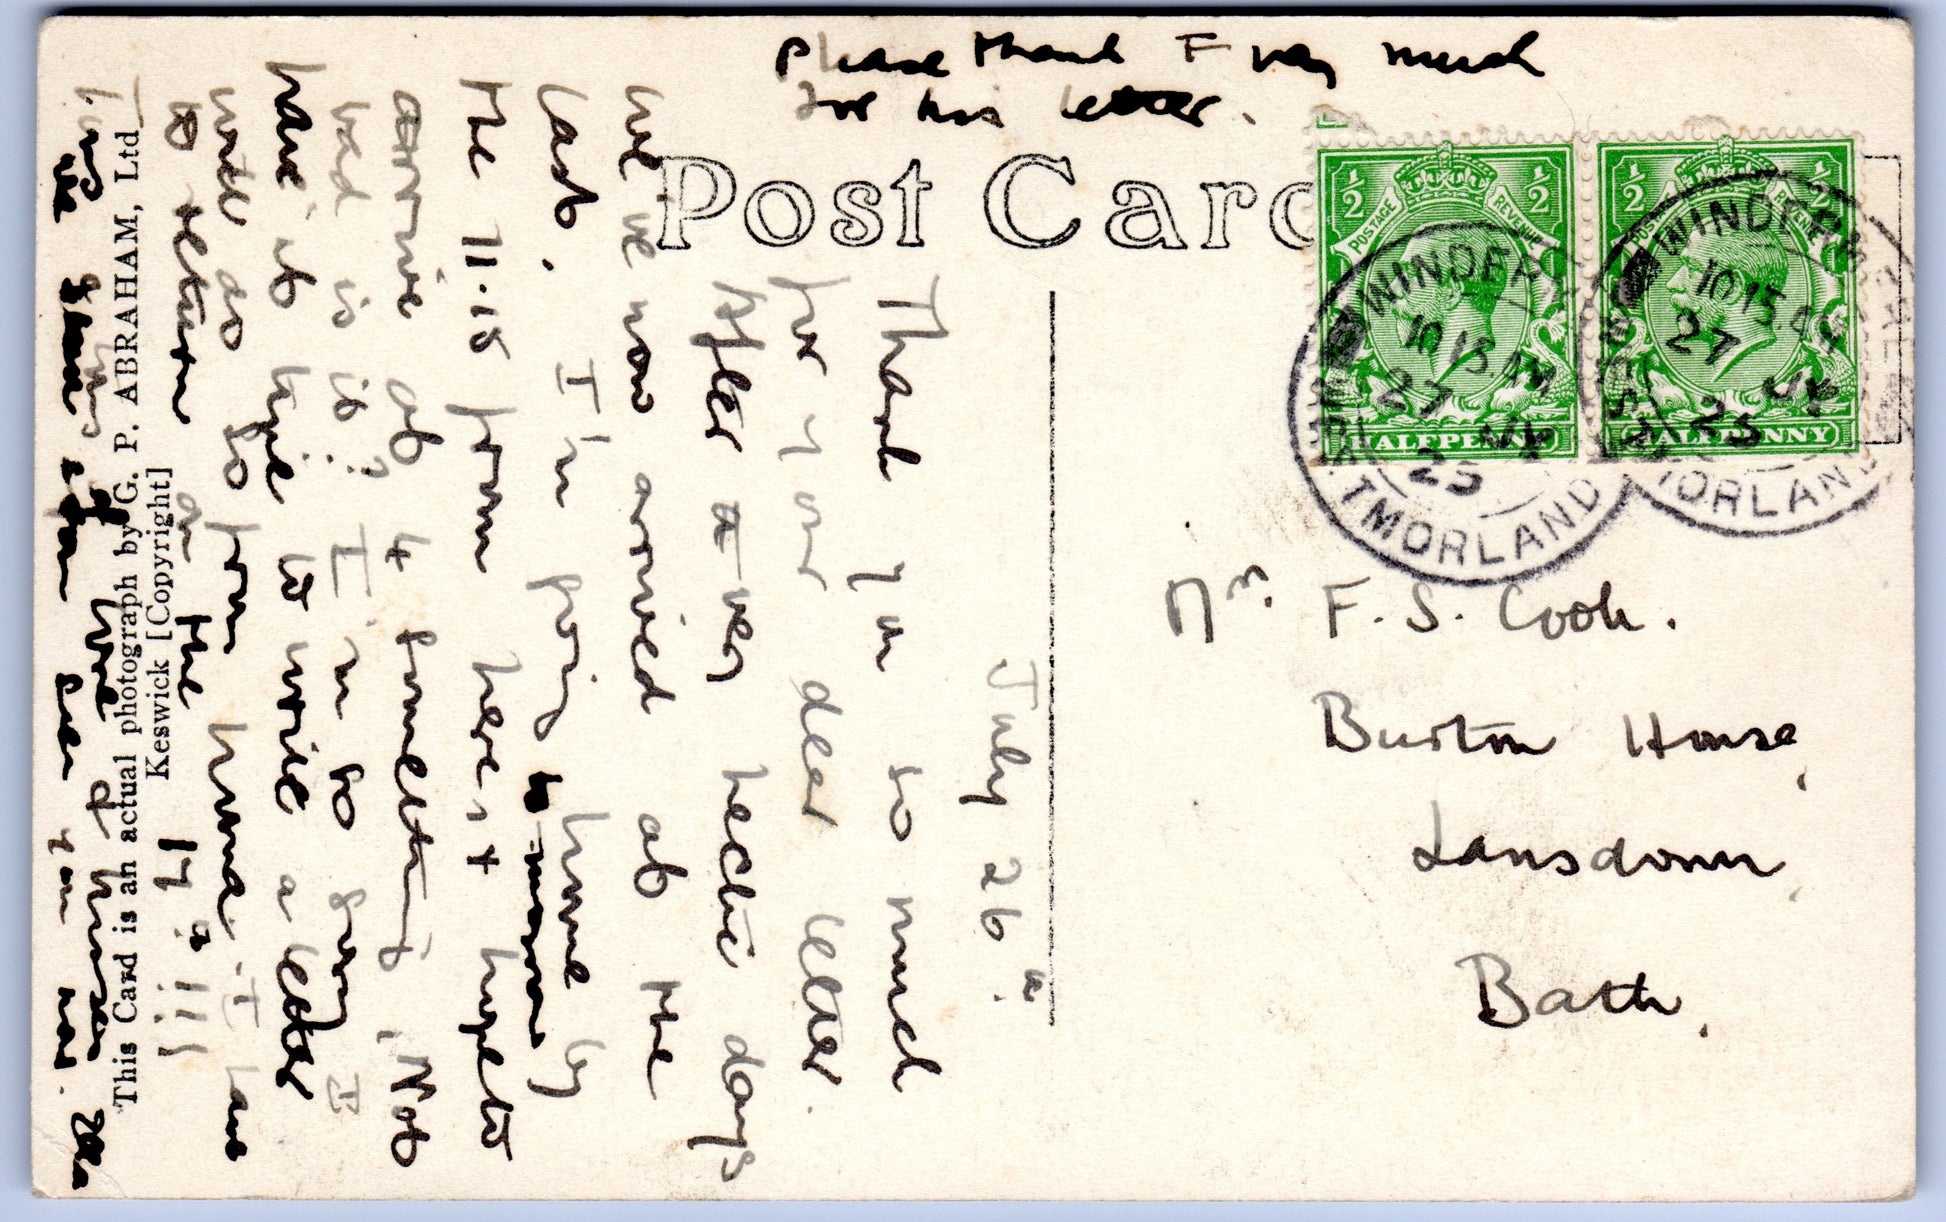 Please thank F very much
for his letter.
Post Card
½ ½
POSTAGE REVENUE
HALFPENNY
½ ½
POSTAGE REVENUE
HALFPENNY
WINDERM
10 15 AM
27 JY
25
WESTMORLAND
WINDERM
10 15 AM
27 JY
25
WESTMORLAND
Mrs. F. S. Cook.
Burton House,
Lansdown,
Bath.
July 26th.
Thank you so much
for your dear letter.
After a very hectic days
we've now arrived at the
last. I'm going home by
to-morrow
the 11.15 from here & hope to
arrive at 4 something, Not
bad is it? I'm so glad I
have it here to write a letter
well do so from home. I have
to return on the 17th
We same again soon you now.
This Card is an actual photograph by G. P. ABRAHAM, Ltd
Keswick [Copyright]